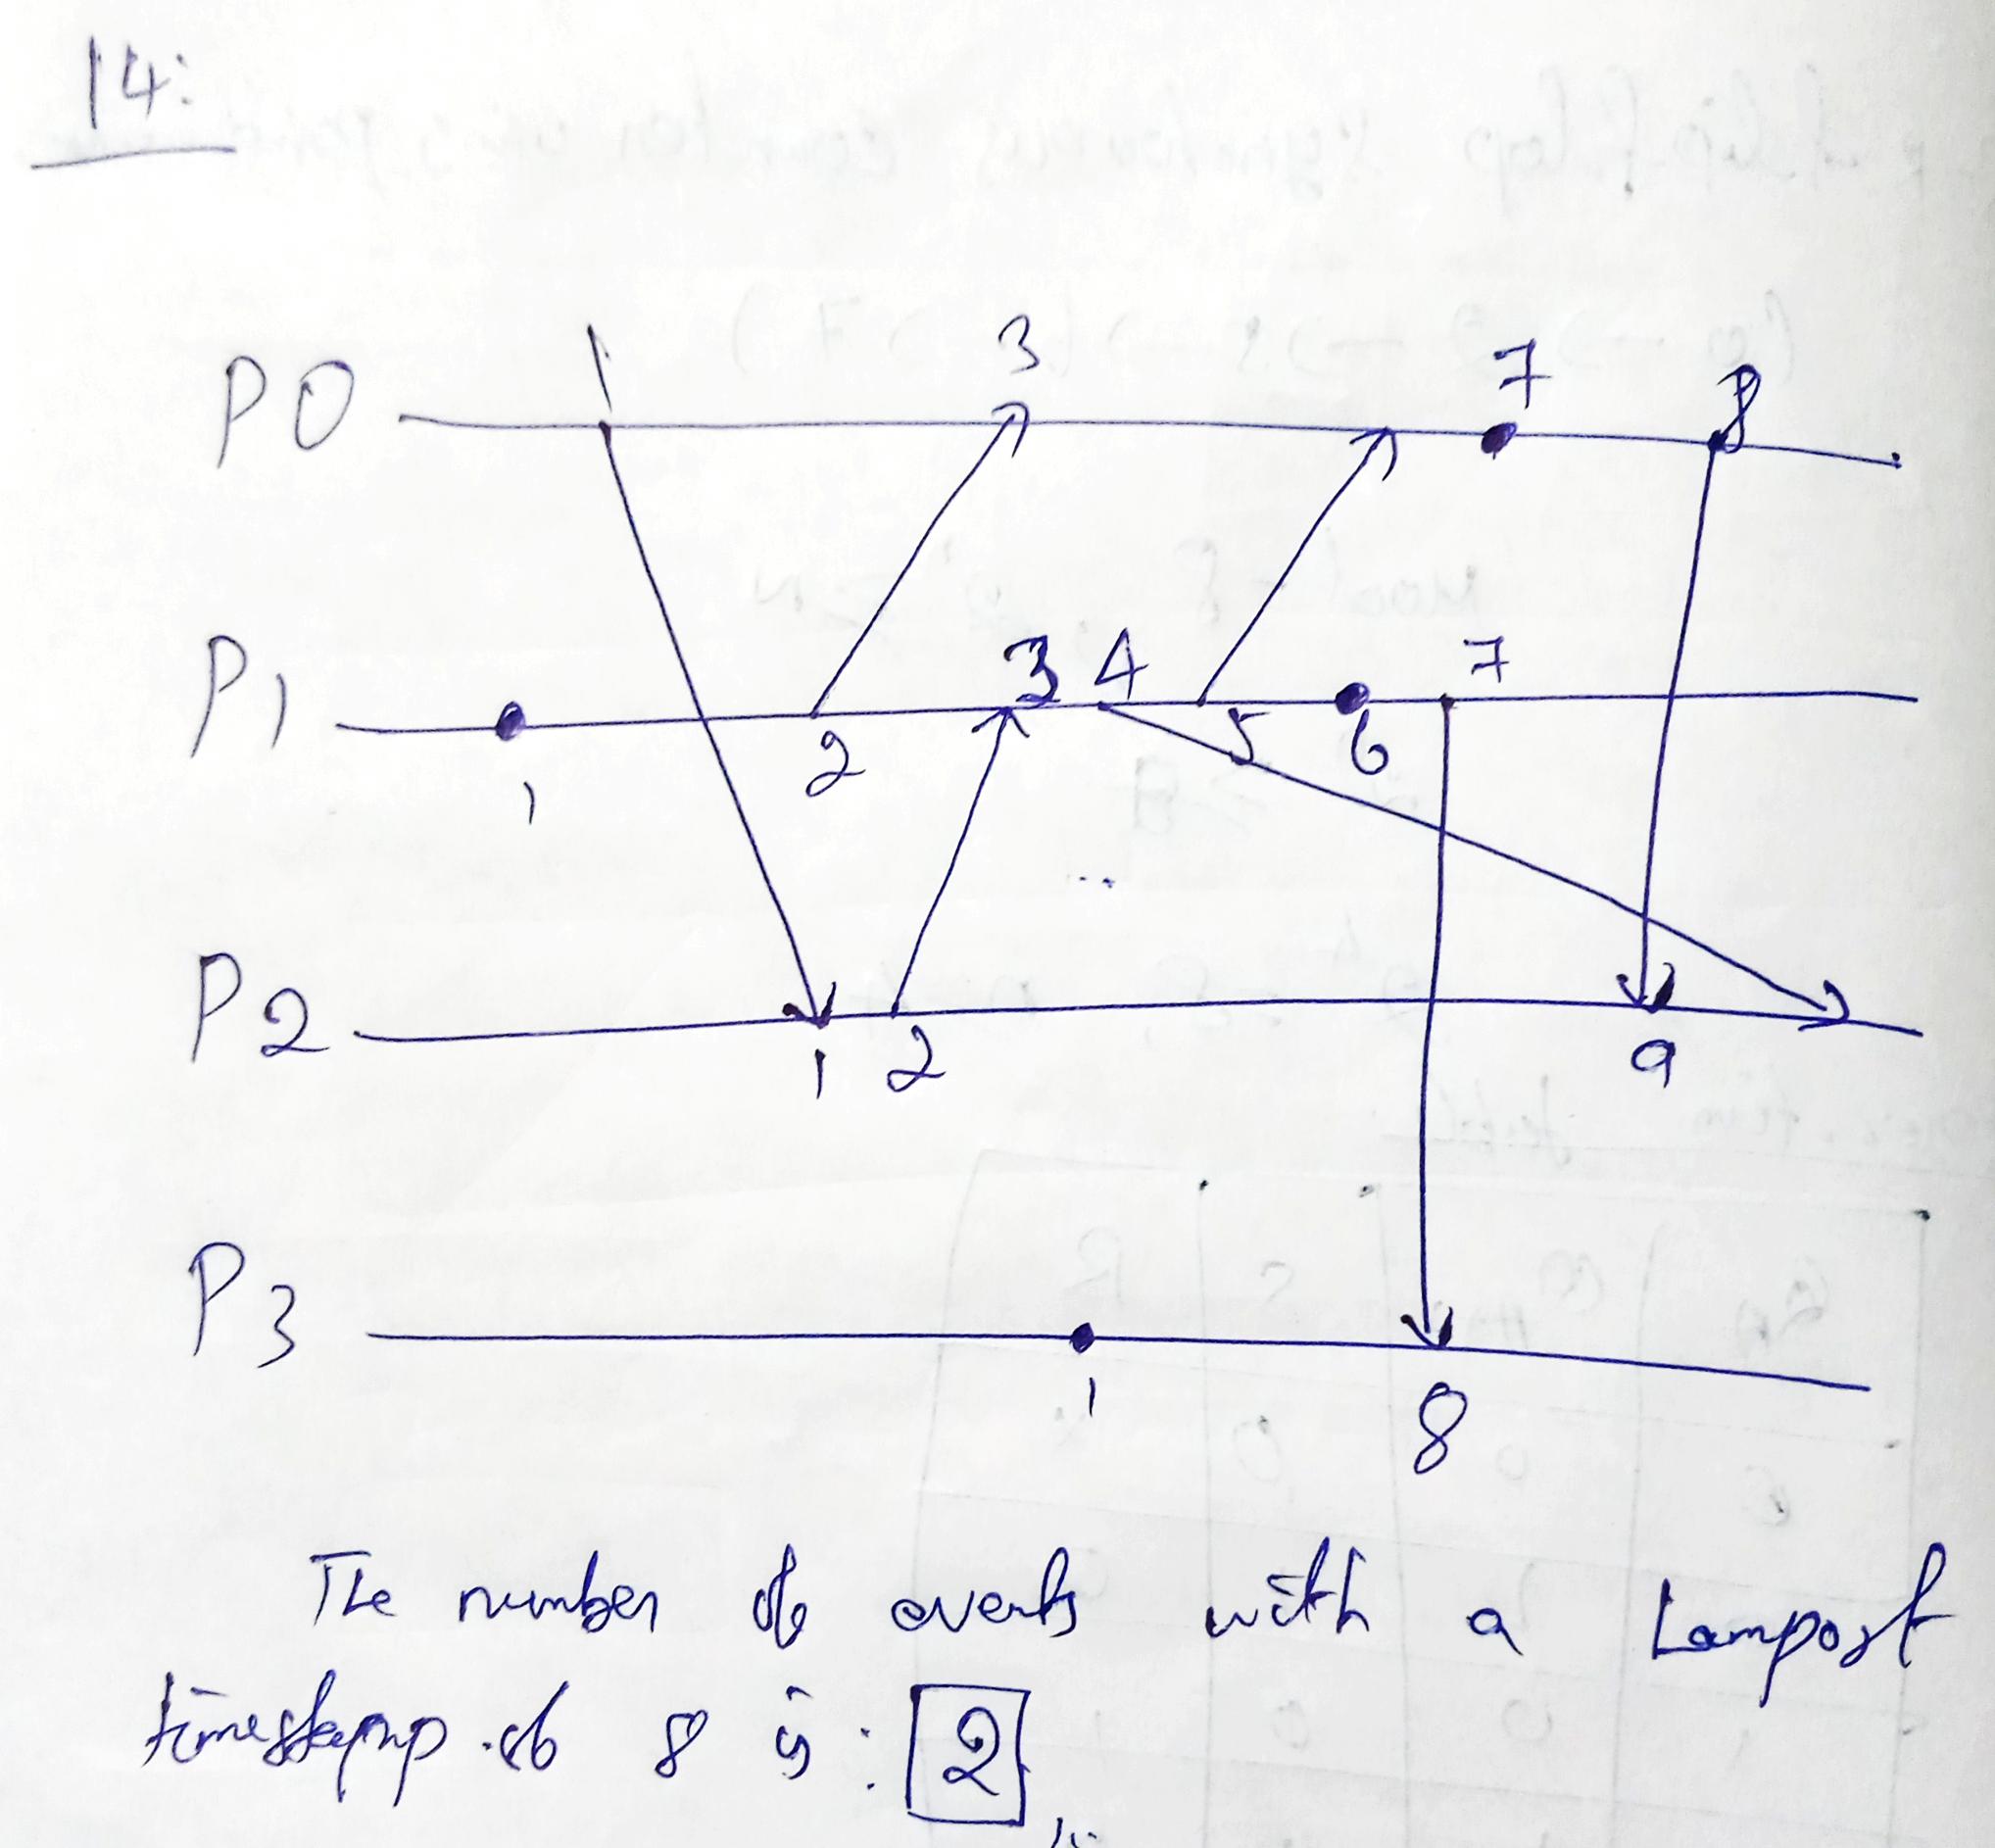 14:
1 3 7 8
P0
3 4 7
P1
1 2 5 6
P2
1 2 9
P3
1 8
The number of events with a Lamport
timestamp of 8 is : 2